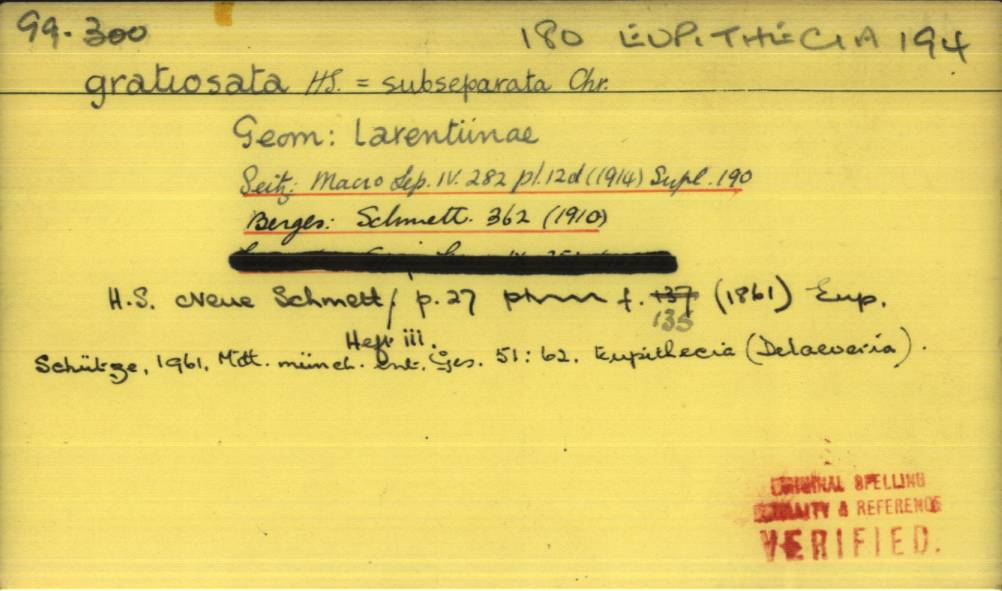 99.300
180 EUPITHECIA 194
gratiosata HS. = subseparata Chr.
Geom: Larentiinae
Seitz: Macro Lep. IV. 282 pl.12d (1914) Supl. 190
Berges: Schmett. 362 (1910)
H.S. Neue Schmett, p.27 f. 137 (1861) Eup.
135
Heft iii.
Schütze, 1961, Mitt. münch. Ent. Ges. 51: 62. Eupithecia (Delaeveria).
ORIGINAL SPELLING
LOCALITY & REFERENCE
VERIFIED.